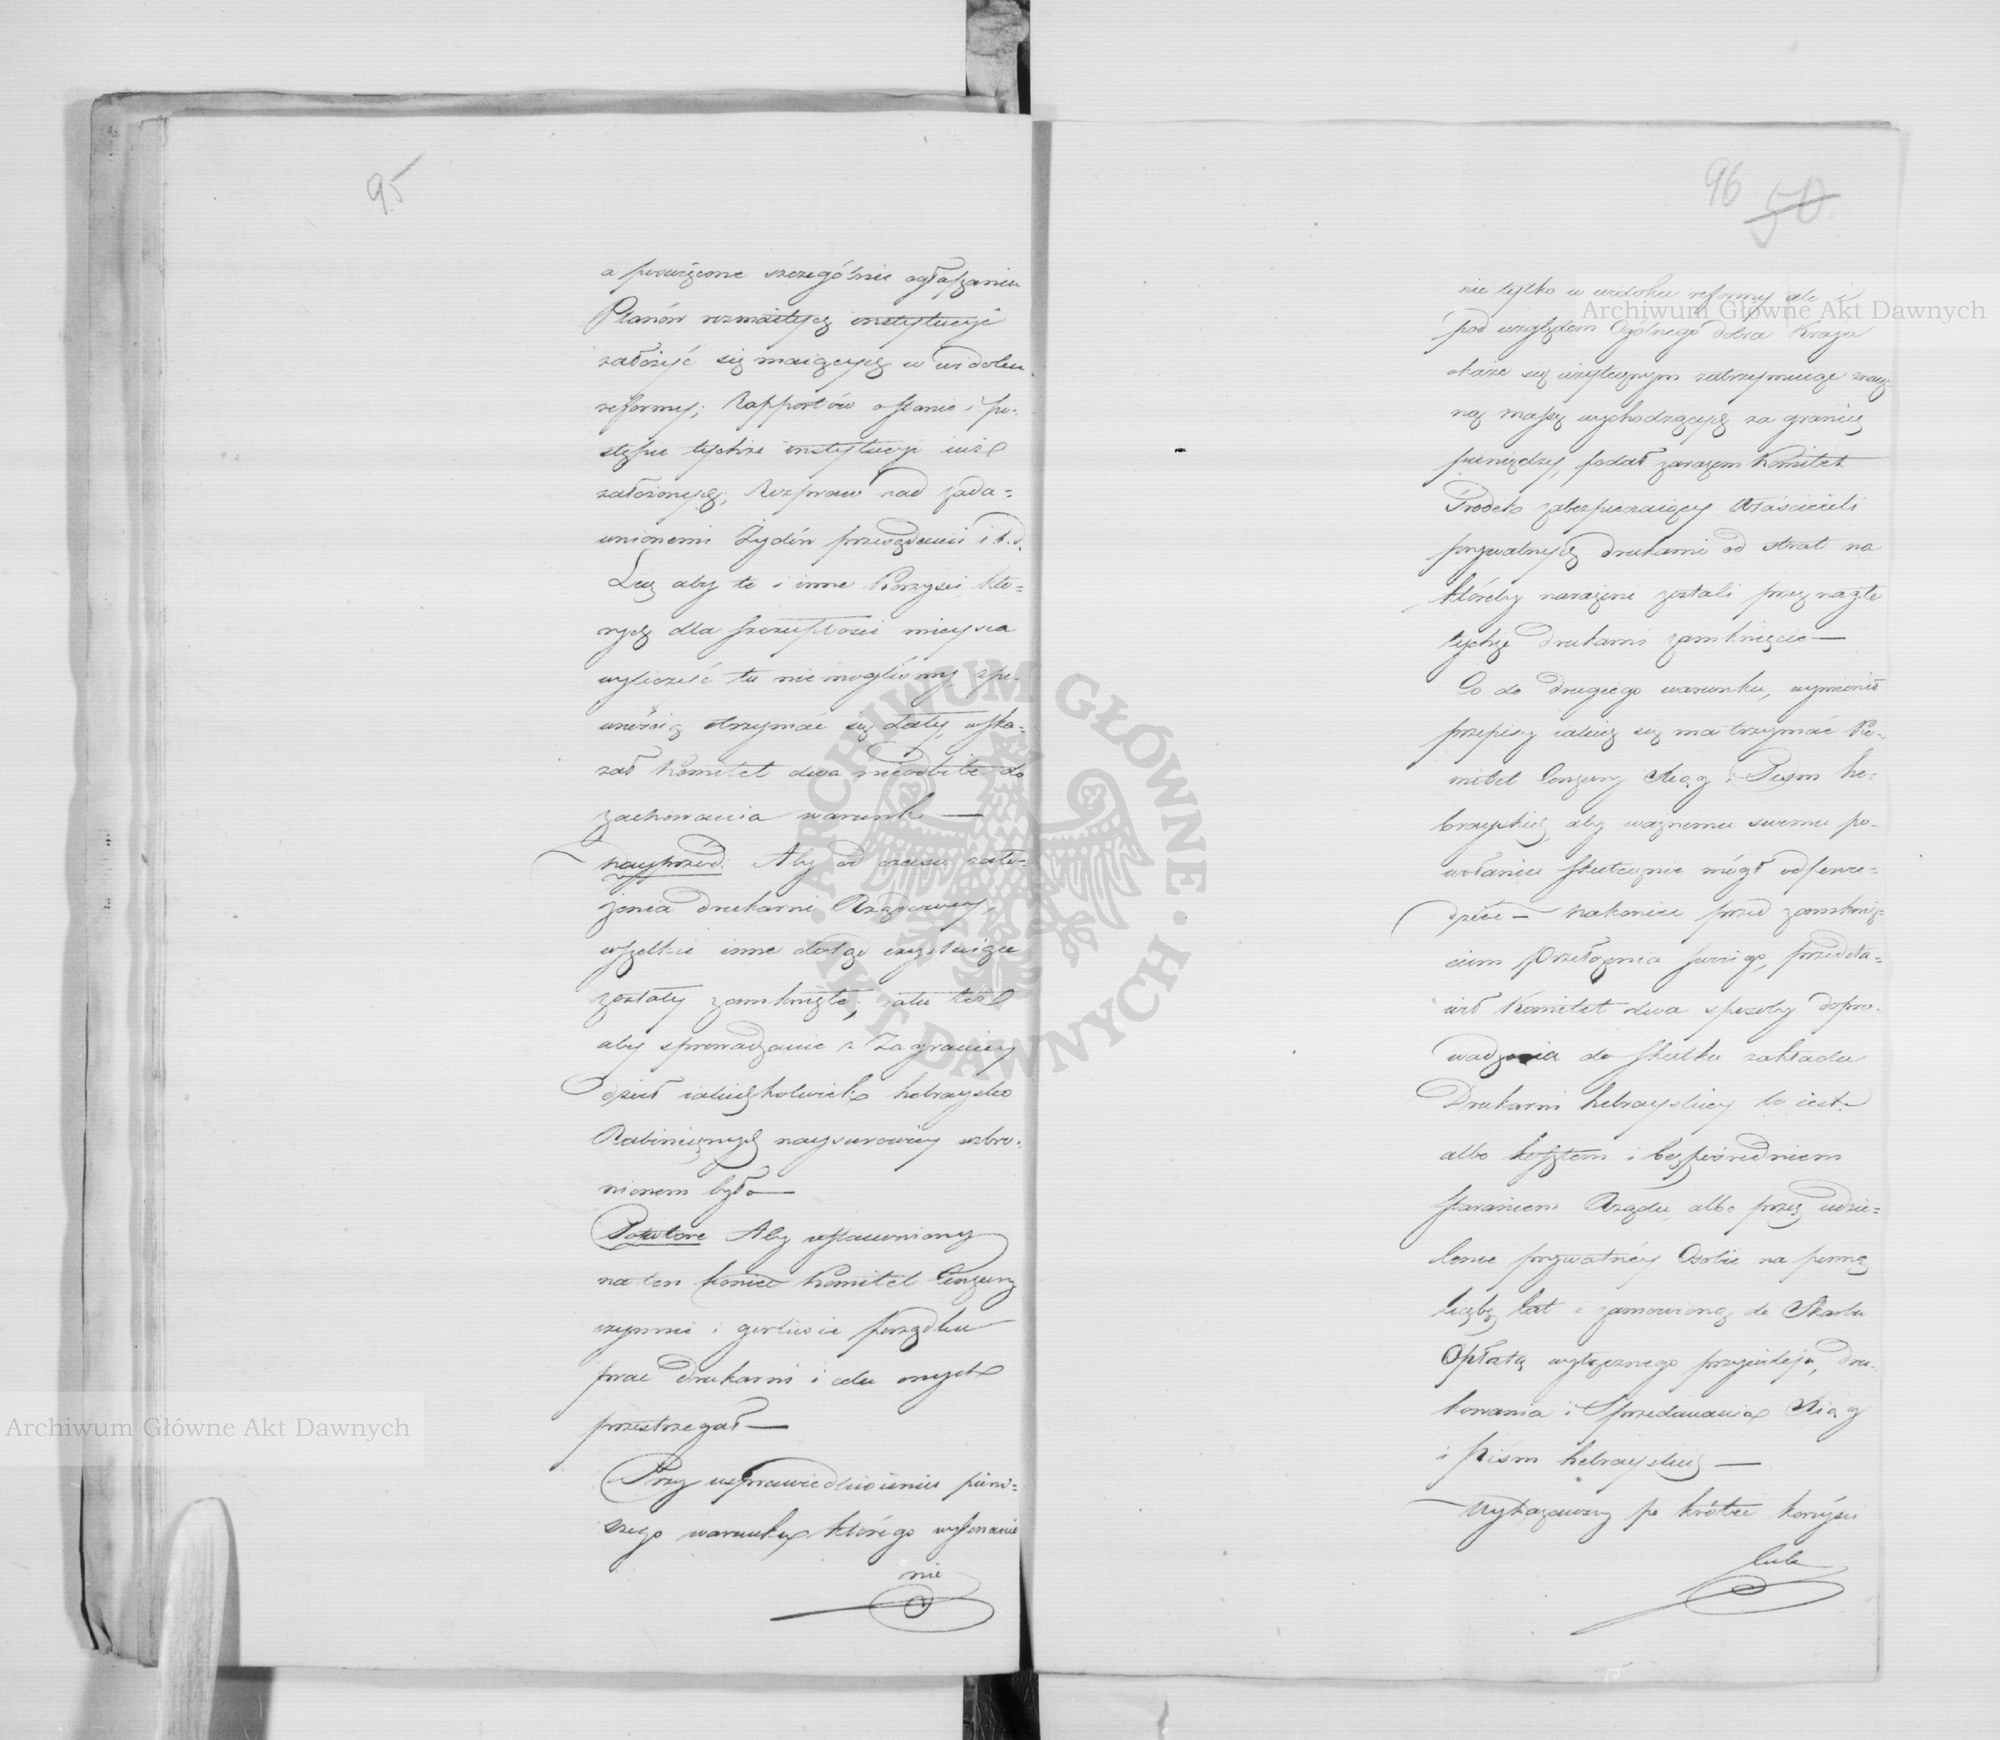 95
a poswięcone szczególnie ogłaszaniu
Planów rozmaitych instytucyi
założyć się maiących w widoku
reformy; Rapportów o stanie i po-
stępie tychże instytucyi iuż
założonych; Rozpraw nad zada-
wnionemi Żydów przesądami i t. d.
Lecz aby te i inne Korzyści, któ-
rych dla szczupłości mieysca
wyliczyć tu nie mogliśmy, z pe-
wnością otrzymać się dały, wska-
zał Komitet dwa nieodbite do
zachowania warunki —
Nayprzód. Aby od czasu zało-
żenia drukarni Rządowey,
wszelkie inne dotąd exystuiące
zostały zamknięte; iako też
aby sprowadzanie z Zagranicy
dzieł iakichkolwiek hebraysko
Rabinicznych naysurowiey wzbro-
nionem było —
Powtóre Aby ustanowiony
na ten koniec Komitet Cenzury
czynnie i gorliwie porządku
prac drukarni i celu onych
przestrzegał —
Przy usprawiedliwieniu pierw-
szego warunku, którego wykonanie
nie
96 50
nie tylko w widoku reformy ale i
pod względem Ogólnego dobra Kraju
okaże się użytecznym zatrzymując znacz-
ną massę wychodzących za granicę
pieniędzy, podał zarazem Komitet
Środek zabezpieczaiący Właścicieli
prywatnych drukarni od strat na
któreby narażeni zostali przez nagłe
tychże drukarni zamknięcie —
Co do drugiego warunku, wymienił
przepisy iakich się ma trzymać Ko-
mitet Cenzury Xiąg i Pism he-
brayskich, aby ważnemu swemu po-
wołaniu skutecznie mógł odpowie-
dzieć — Nakoniec przed zamknię-
ciem Przełożenia swoiego, przedsta-
wił Komitet dwa sposoby dopro-
wadzenia do skutku zakładu
Drukarni hebrayskiey to iest:
albo kosztem i bezpośredniem
staraniem Rządu, albo przez udzie-
lenie prywatnéy Osobie na pewną
liczbę lat i zamówioną do Skarbu
Opłatą wyłącznego przywileju, dru-
kowania i Sprzedawania Xiąg
i pism hebrayskich —
Wykazawszy po krótce korzyści
Archiwum Główne Akt Dawnych
Archiwum Główne Akt Dawnych
ARCHIWUM GŁÓWNE · AKT DAWNYCH ·